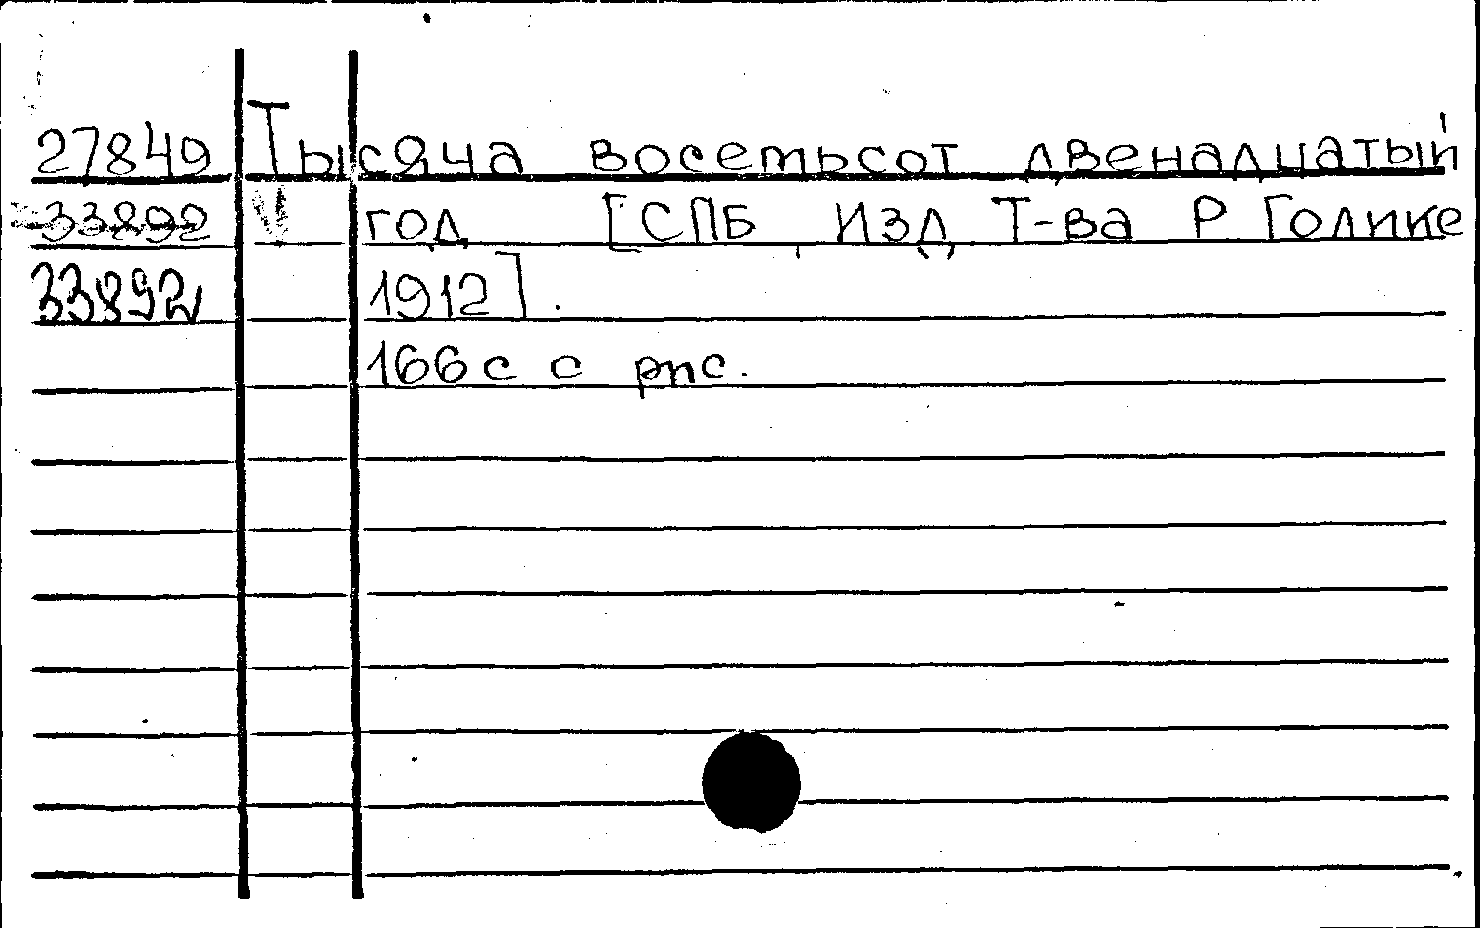 27849 Тысяча восемьсот двенадцатый
33892 год [СПБ, Изд. Т-ва Р Голике
33892 1912].
166 с с рис.